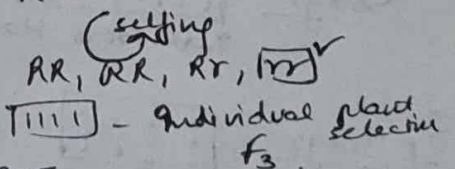 selfing
RR, RR, Rr, rr
- Individual plant selection
F3